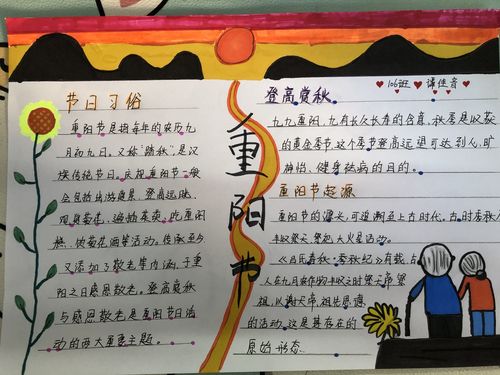 节日习俗
重阳节是指每年的农历九
月初九日。又称"踏秋"是汉
族传统节日。庆祝重阳节一般
会包括出游赏景、登高远眺、
观赏菊花、遍插茱萸、吃重阳
糕、饮菊花酒等活动。传承至今
又添加了敬老等内涵,于重
阳之日感恩敬老。登高赏秋
与感恩敬老是重阳节日活
动的两大重要主题。
重阳节
106班
谭佳音
登高赏秋
九九重阳,九有长久长寿的含意,秋季是收获
的黄金季节,这个季节登高远望可达到心旷
神怡、健身祛病的目的。
重阳节起源
重阳节的源头,可追溯至上古时代。古时季秋有
丰收祭天、祭祀大火星活动。
《吕氏春秋·季秋纪》有载,古
人在九月农作物丰收之时祭天帝、祭
祖,以谢天帝、祖先恩德
的活动。这是其存在的
原始形态。